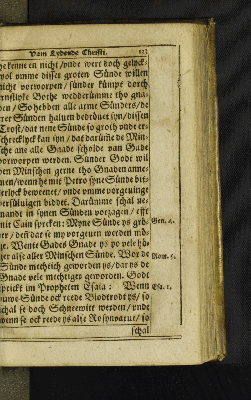 Vam Lydende Christi. 123
he kenne en nicht / vnde wert doch gelyck
wol vmme disser groten Sünde willen
nicht vorworpen / sünder kümpt dorch
ernstlyke Bothe wedderümme tho gna-
den / So hebben alle arme Sünders / de
erer Sünden haluen bedröuet syn / dissen
Trost / dat nene Sünde so groth vnde er-
schrecklyck kan syn / dat darümme de Min-
sche ans alle Gnade scholde van Gade
vorworpen werden. Sünder Godt wil
den Minschen gerne tho Gnaden anne-
men / wenn he mit Petro syne Sünde bit-
terlyck bewenet / vnde vmme vorgeuinge
versüluigen biddet. Darümme schal ne-
mandt in synen Sünden vorzagen / efft
mit Cain spreken: Myne Sünde ys grö- Gen. 4.
ter / den dat se my vorgeuen werden mö-
ge. Wente Gades Gnade ys yo vele hö-
ger alse aller Minschen Sünde. Wor de Rom. 5.
Sünde mechtich geworden ys / dar ys de
Gnade vele mechtiger geworden. Godt
sprickt im Propheten Esaia: Wenn Esa. 1.
iuwe Sünde ock reede Blodtrodt ys / so
schal se doch Schneewitt werden / vnde
wenn se ock reede ys alse Rosynvarue / so
schal